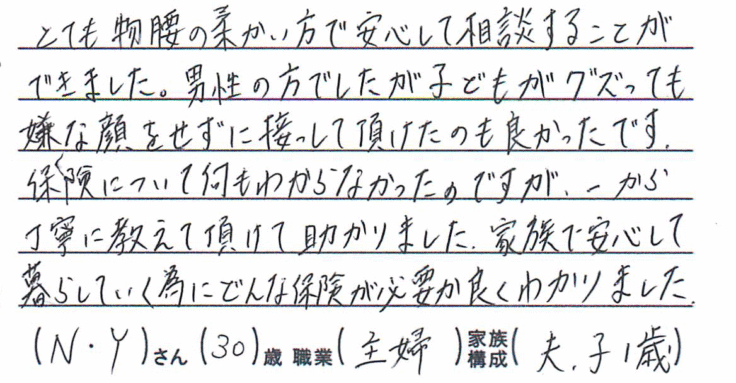 とても物腰の柔かい方で安心して相談することが
できました。男性の方でしたが子どもがグズっても
嫌な顔をせずに接っして頂けたのも良かったです.
保険について何もわからなかったのですが、一から
丁寧に教えて頂けて助かりました. 家族で安心して
暮らしていく為にどんな保険が必要か良くわかりました.
(N・Y)さん(30)歳 職業(主婦)家族構成(夫.子1歳)